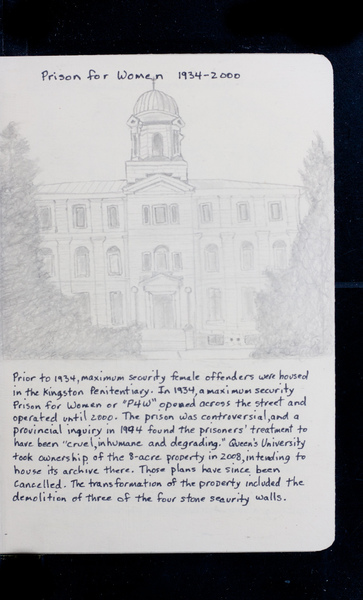 Prison for Women 1934-2000
Prior to 1934, maximum security female offenders were housed
in the Kingston Penitentiary. In 1934, a maximum security
Prison for Women or "P4W" opened across the street and
operated until 2000. The prison was controversial, and a
provincial inquiry in 1994 found the prisoners' treatment to
have been "cruel, inhumane and degrading." Queen's University
took ownership of the 8-acre property in 2008, intending to
house its archive there. Those plans have since been
cancelled. The transformation of the property included the
demolition of three of the four stone security walls.